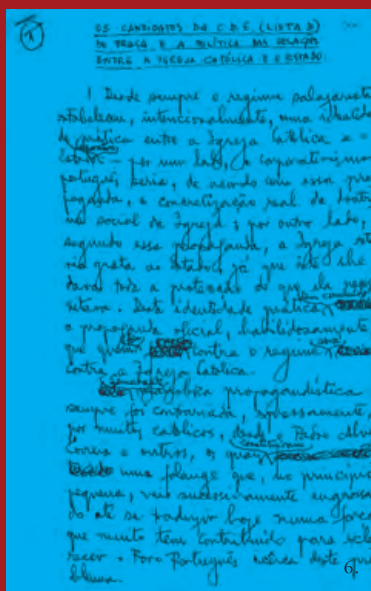 1
OS CANDIDATOS DA C.D.E. (LISTA D)
DE BRAGA E A POLÍTICA DAS RELAÇÕES
ENTRE A IGREJA CATÓLICA E O ESTADO
1 Desde sempre o regime salazarista
estabeleceu, intencionalmente, uma identida
de prática entre a Igreja Católica e o
Estado – por um lado, o corporativismo
português seria, de acordo com essa pro
paganda, a concretização real da doutri
na social da Igreja; por outro lado,
segundo essa propaganda, a Igreja esta
ria grata ao Estado, já que este lhe
dava toda a protecção de que ela neces
sitava. Desta identidade prática
a propaganda oficial, habilidosamente
que quem contra o regime
contra a Igreja Católica.
manobra propagandística
sempre foi contrariada, expressamente,
por muitos católicos, desde o Padre Alves
Correia e outros, os quais
uma falange que, no princípio
pequena, veio sucessivamente engrossan
do até se traduzir hoje numa força
que muito tem contribuído para escla
recer o Povo Português acerca deste pro
blema.
6.